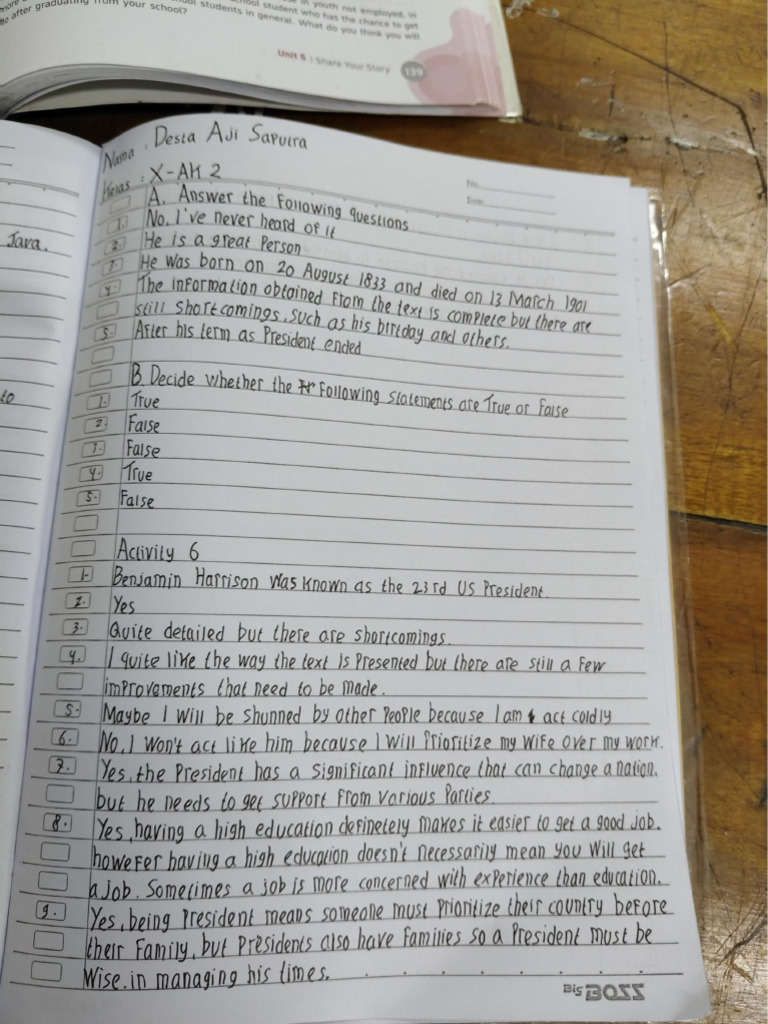 in youth not employed, in
student who has the chance to get
so after graduating from your school? students in general. What do you think you will
Unit 5 | Share Your Story 139
Nama : Desta Aji Saputra
Kelas : X-AK 2
No.
Date:
A. Answer the Following questions
1. No, I've never heard of it
2. He is a great Person
3. He was born on 20 August 1833 and died on 13 March 1901
4. The information obtained From the text is complete but there are
still shortcomings, such as his birtday and others.
5. After his term as President ended
B. Decide whether the Following statements are True or False
1. True
2. False
3. False
4. True
5. False
Activity 6
1. Benjamin Harrison was known as the 23rd US President.
2. Yes
3. Quite detailed but there are shortcomings.
4. I quite like the way the text is Presented but there are still a Few
improvements that need to be made.
5. Maybe I will be shunned by other People because I am act coldly
6. No, I won't act like him because I will Prioritize my wife over my work.
7. Yes, the President has a significant influence that can change a nation,
but he needs to get support From various Parties.
8. Yes, having a high education definetely makes it easier to get a good job.
howefer having a high education doesn't necessarily mean you will get
a job. Sometimes a job is more concerned with experience than education.
9. Yes, being President means someone must Prioritize their country before
their Family, but Presidents also have Families so a President must be
wise in managing his times.
Big BOSS
Java.
to